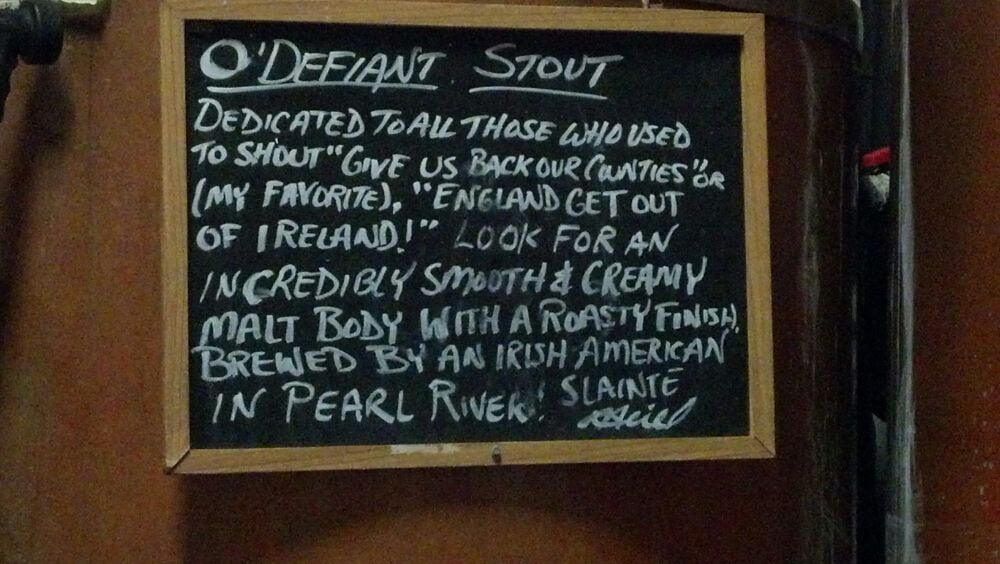 O'DEFIANT STOUT
DEDICATED TO ALL THOSE WHO USED
TO SHOUT "GIVE US BACK OUR COUNTIES" OR
(MY FAVORITE), "ENGLAND GET OUT
OF IRELAND!" LOOK FOR AN
INCREDIBLY SMOOTH & CREAMY
MALT BODY WITH A ROASTY FINISH.
BREWED BY AN IRISH AMERICAN
IN PEARL RIVER! SLAINTE